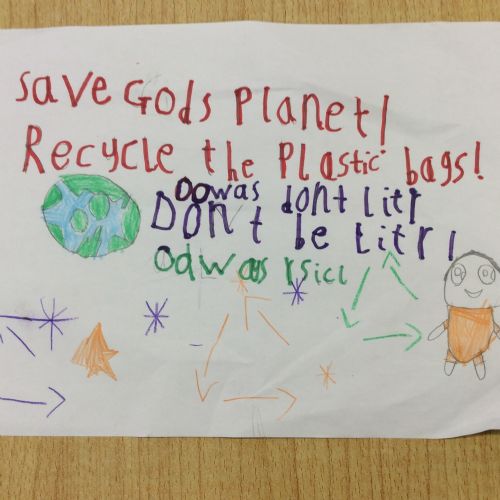 save Gods Planet!
Recycle the Plastic bags!
oowas dont litr
Don't be litr!
odwas rsicl